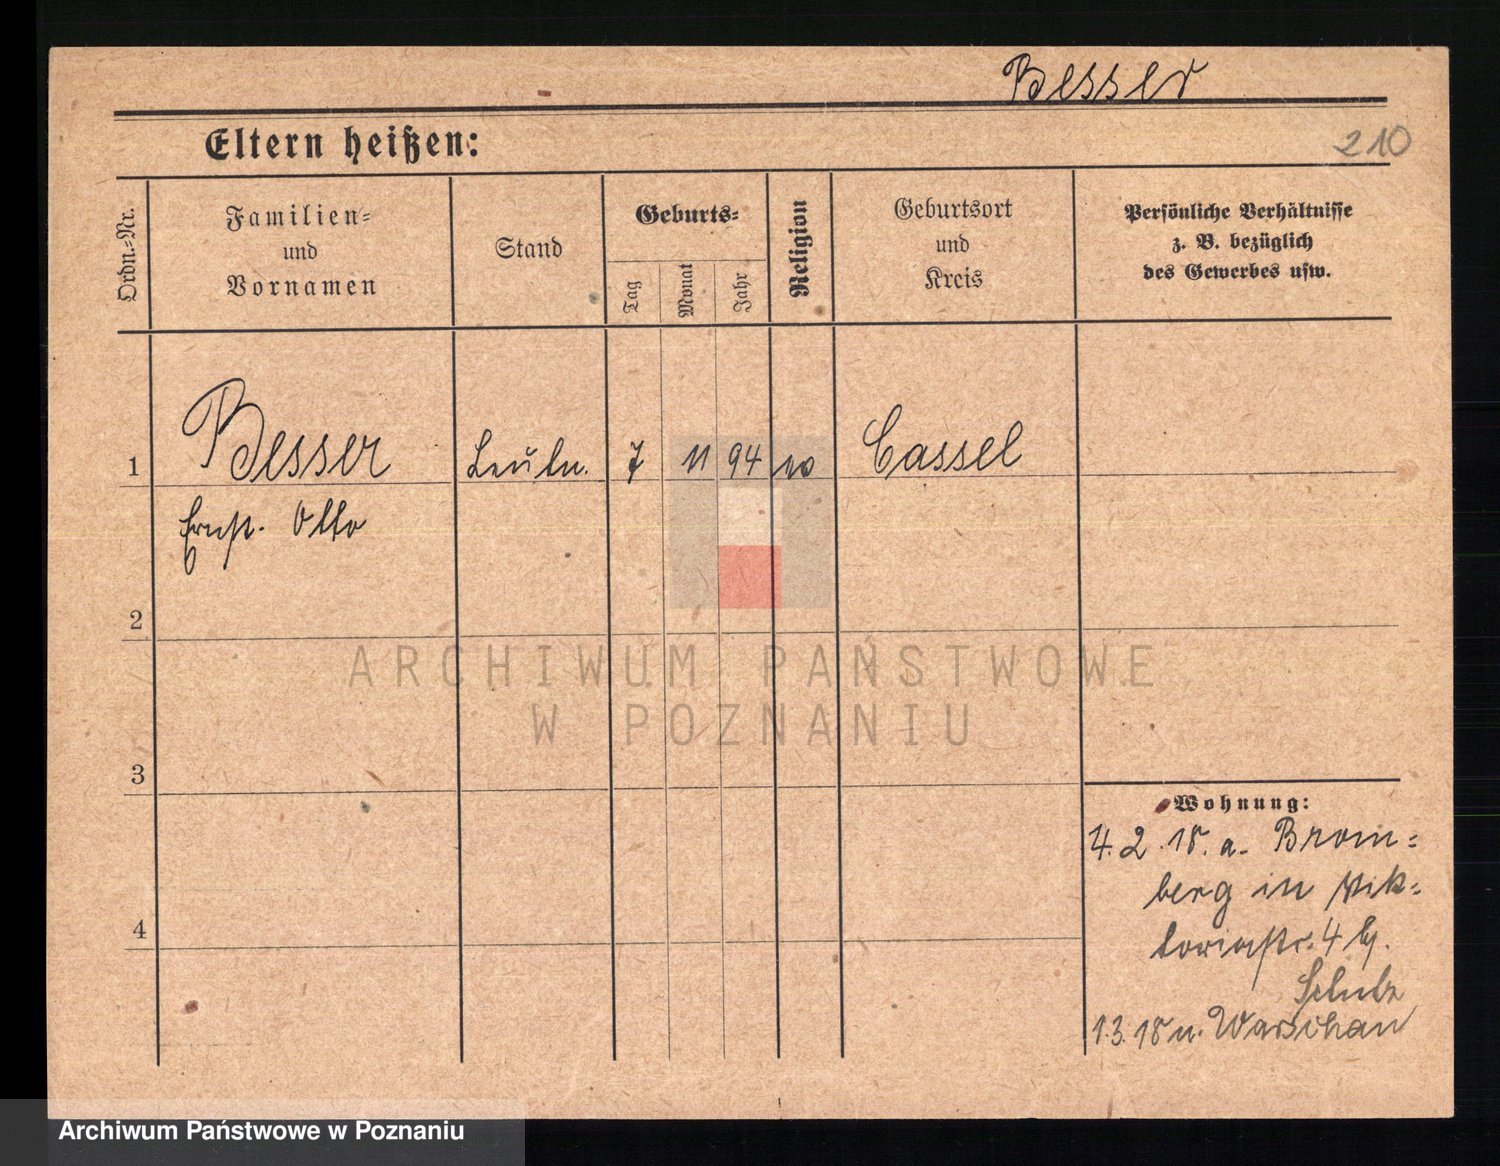 Besser
Eltern heißen:
210
Ordn.-Nr.
Familien-
und
Vornamen
Stand
Geburts-
Tag
Monat
Jahr
Religion
Geburtsort
und
Kreis
Persönliche Verhältnisse
z. B. bezüglich
des Gewerbes usw.
1
Besser
Leutn.
7
11
94
Cassel
Ernst Otto
2
ARCHIWUM PAŃSTWOWE
W POZNANIU
3
Wohnung:
4.2.18. a. Brom-
berg in Vik-
4
toriastr. 4 b.
Schulz
1.3.18 n. Warschau
Archiwum Państwowe w Poznaniu